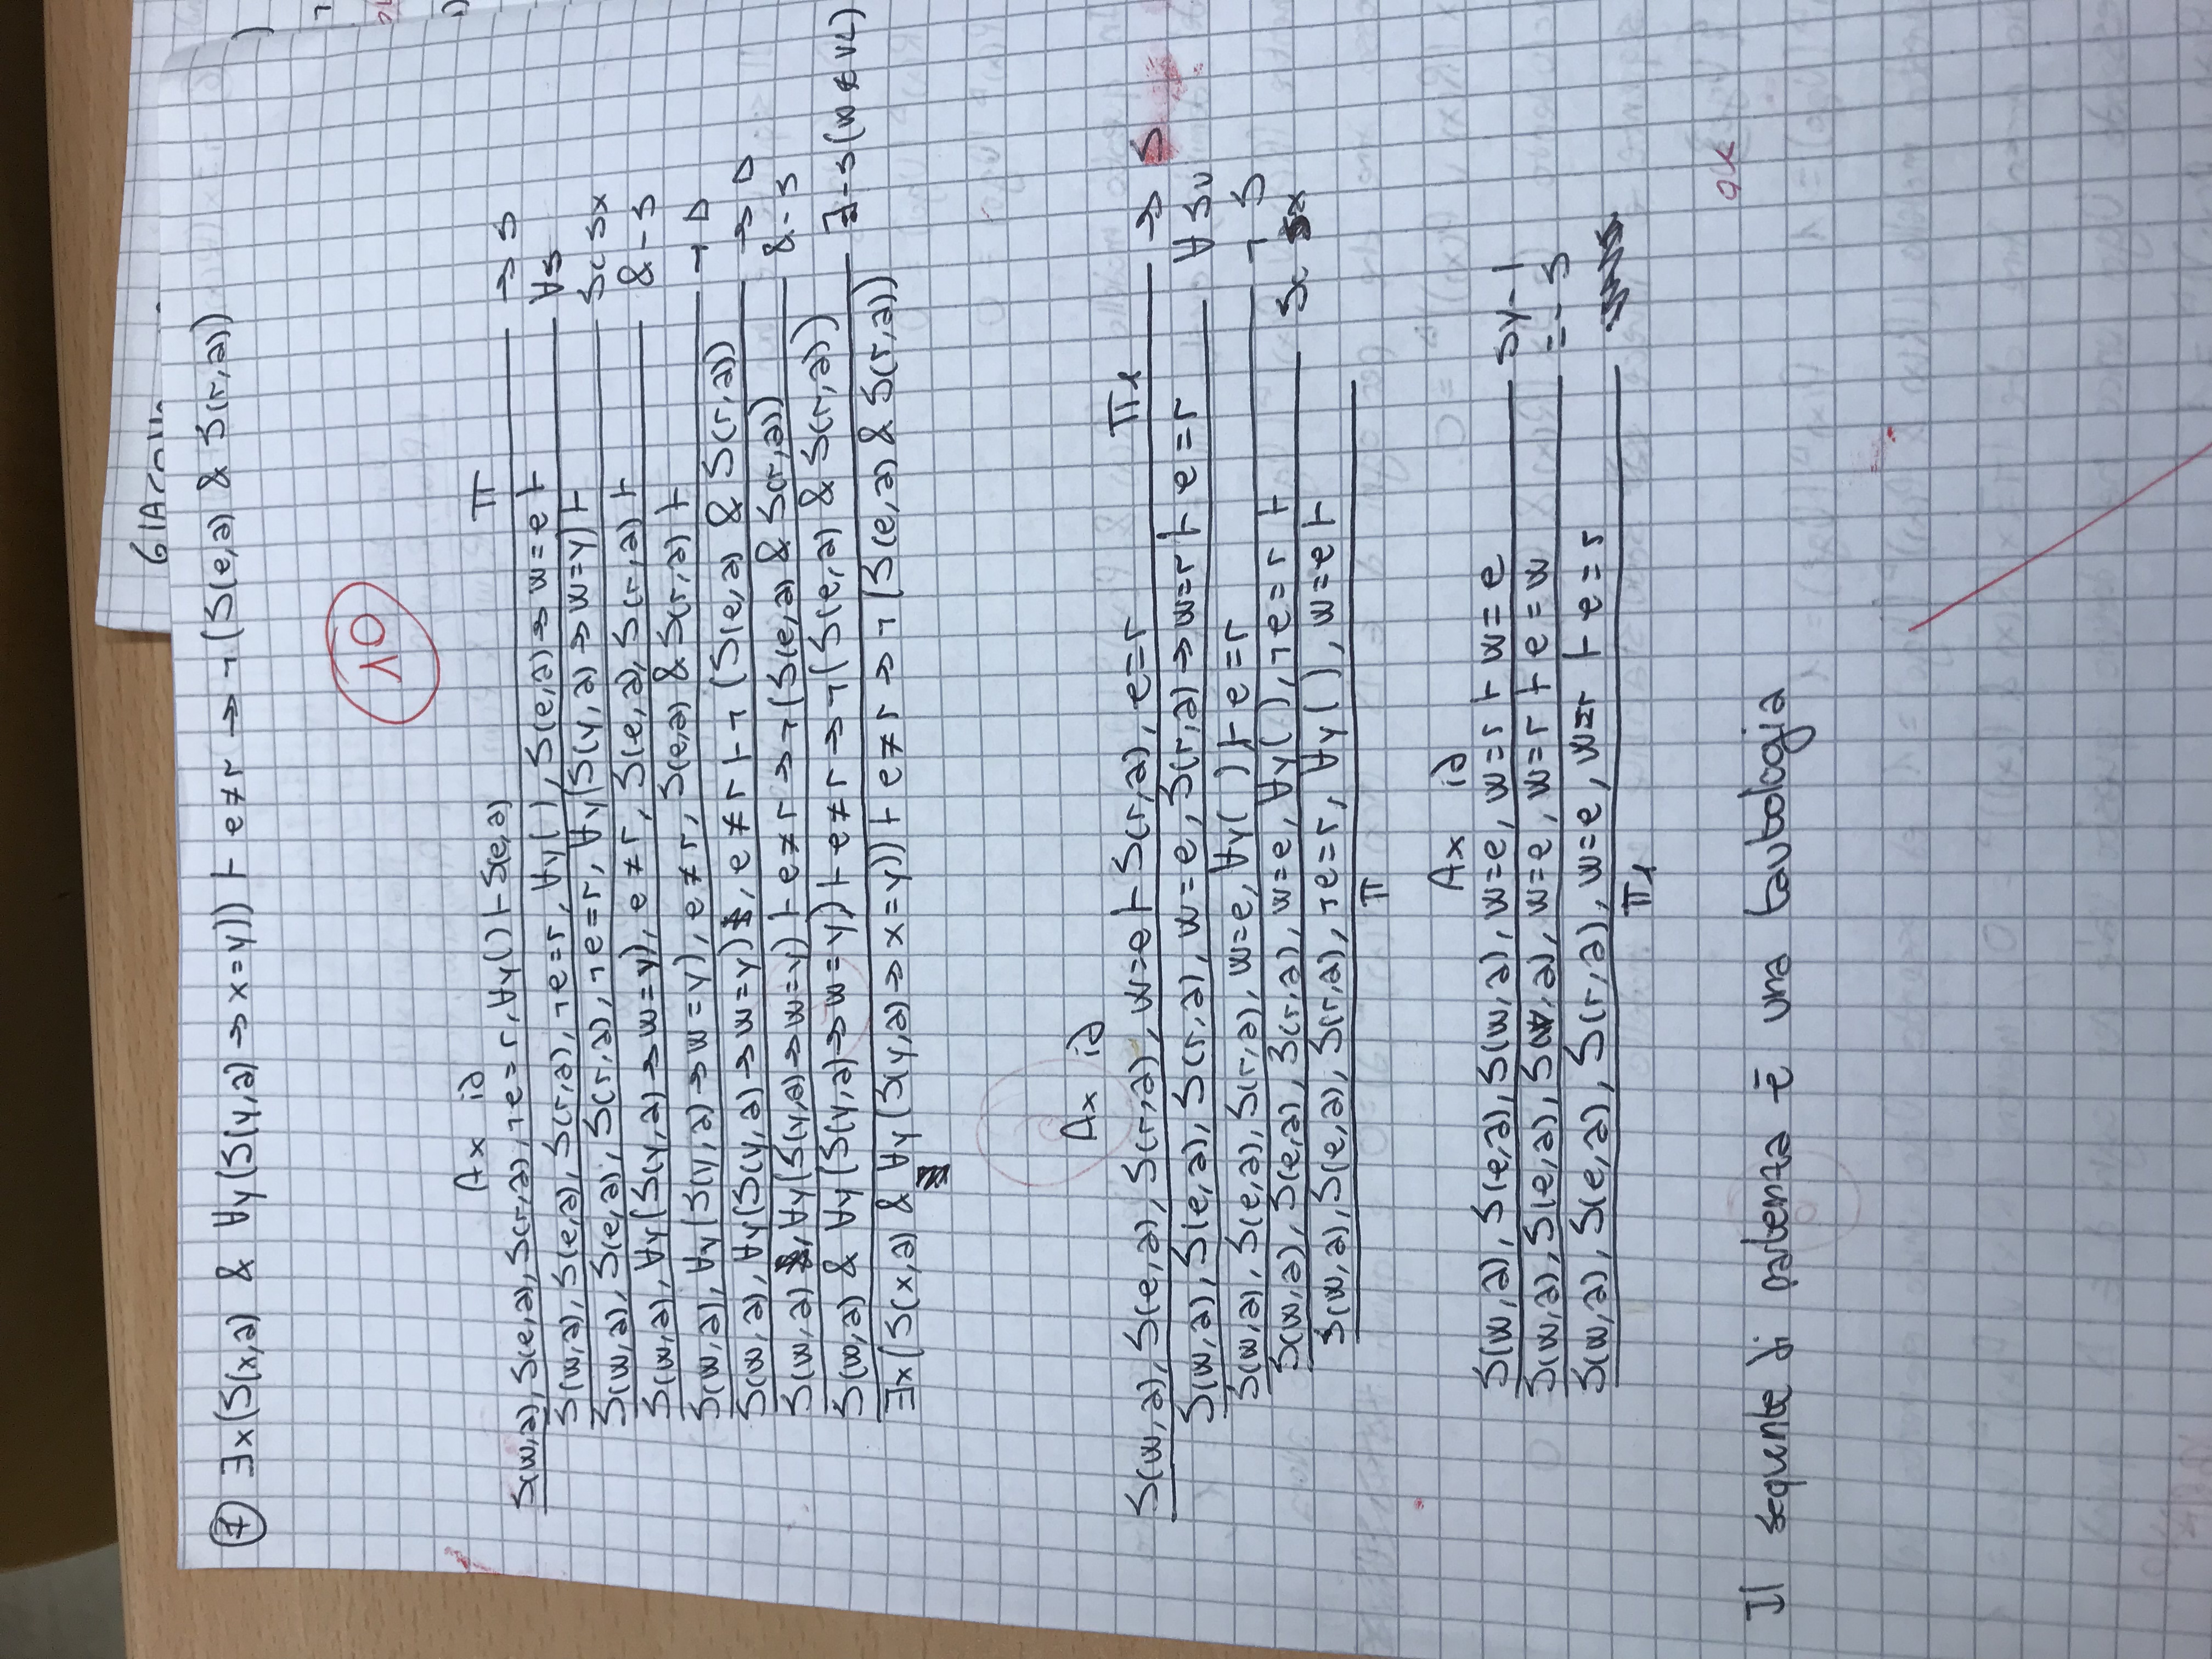 6 IA
⑦ ∃x(S(x,a) & ∀y(S(y,a)→x=y)) ⊢ e≠r → ¬(S(e,a) & S(r,a))
10
Ax id
S(w,a), S(e,a), S(r,a), ¬e=r, ∀y() ⊢ S(e,a) π → S
S(w,a), S(e,a), S(r,a), ¬e=r, ∀y(), S(e,a)→w=e ⊢ ∀S
S(w,a), S(e,a), S(r,a), ¬e=r, ∀y(S(y,a)→w=y) ⊢ Sc Sx
S(w,a), ∀y(S(y,a)→w=y), e≠r, S(e,a), S(r,a) ⊢ &-S
S(w,a), ∀y(S(y,a)→w=y), e≠r, S(e,a) & S(r,a) ⊢ ¬D
S(w,a), ∀y(S(y,a)→w=y), e≠r ⊢ ¬(S(e,a) & S(r,a)) →D
S(w,a), ∀y(S(y,a)→w=y) ⊢ e≠r → ¬(S(e,a) & S(r,a)) &-S
S(w,a) & ∀y(S(y,a)→w=y) ⊢ e≠r → ¬(S(e,a) & S(r,a)) ∃-S(w∉VL)
∃x(S(x,a) & ∀y(S(y,a)→x=y)) ⊢ e≠r → ¬(S(e,a) & S(r,a))
Ax id
S(w,a), S(e,a), S(r,a), w=e ⊢ S(r,a), e=r π1 → S
S(w,a), S(e,a), S(r,a), w=e, S(r,a)→w=r ⊢ e=r ∀Sv
S(w,a), S(e,a), S(r,a), w=e, ∀y() ⊢ e=r ¬S
S(w,a), S(e,a), S(r,a), w=e, ∀y(), ¬e=r ⊢ Sc Sx
S(w,a), S(e,a), S(r,a), ¬e=r, ∀y(), w=e ⊢
π
Ax id
S(w,a), S(e,a), S(w,a), w=e, w=r ⊢ w=e Sy-l
S(w,a), S(e,a), S(w,a), w=e, w=r ⊢ e=w =-S
S(w,a), S(e,a), S(r,a), w=e, w=r ⊢ e=r
π1
ok
Il sequente di partenza è una tautologia